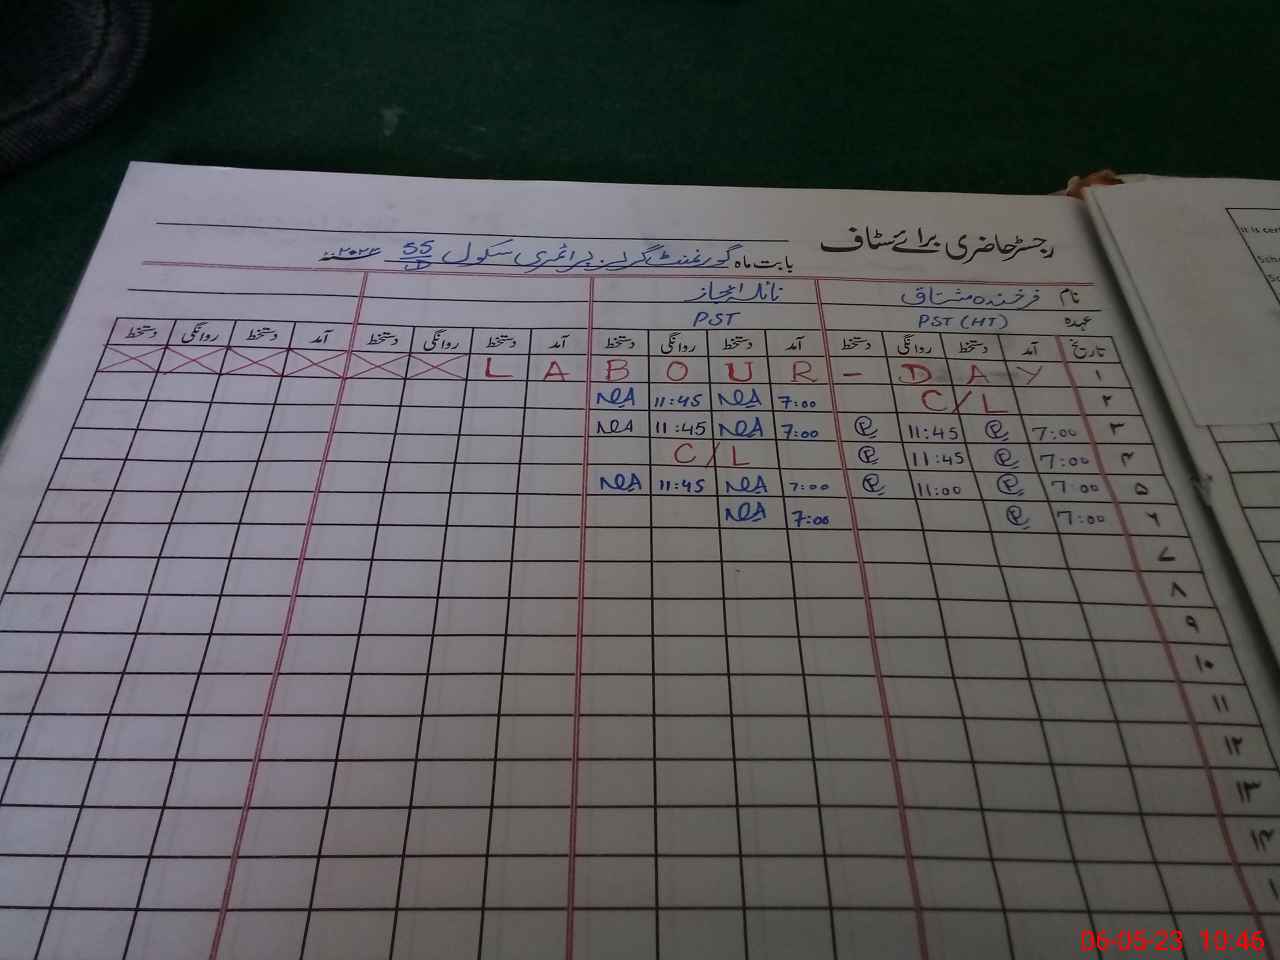 رجسٹر حاضری برائے سٹاف
بابت ماہ گورنمنٹ گرلز پرائمری سکول 55/D ۲۰۲۳
نام فرخندہ مشتاق نائلہ اعجاز
عہدہ PST (HT) PST
تاریخ آمد دستخط روانگی دستخط آمد دستخط روانگی دستخط آمد دستخط روانگی دستخط آمد دستخط روانگی دستخط
۱ L A B O U R - D A Y
۲ C/L 7:00 11:45
۳ 7:00 11:45 7:00 11:45
۴ 7:00 11:45 C/L
۵ 7:00 11:00 7:00 11:45
۶ 7:00 7:00
۷
۸
۹
۱۰
۱۱
۱۲
۱۳
۱۴
It is cer
Scho
06-05-23 10:46